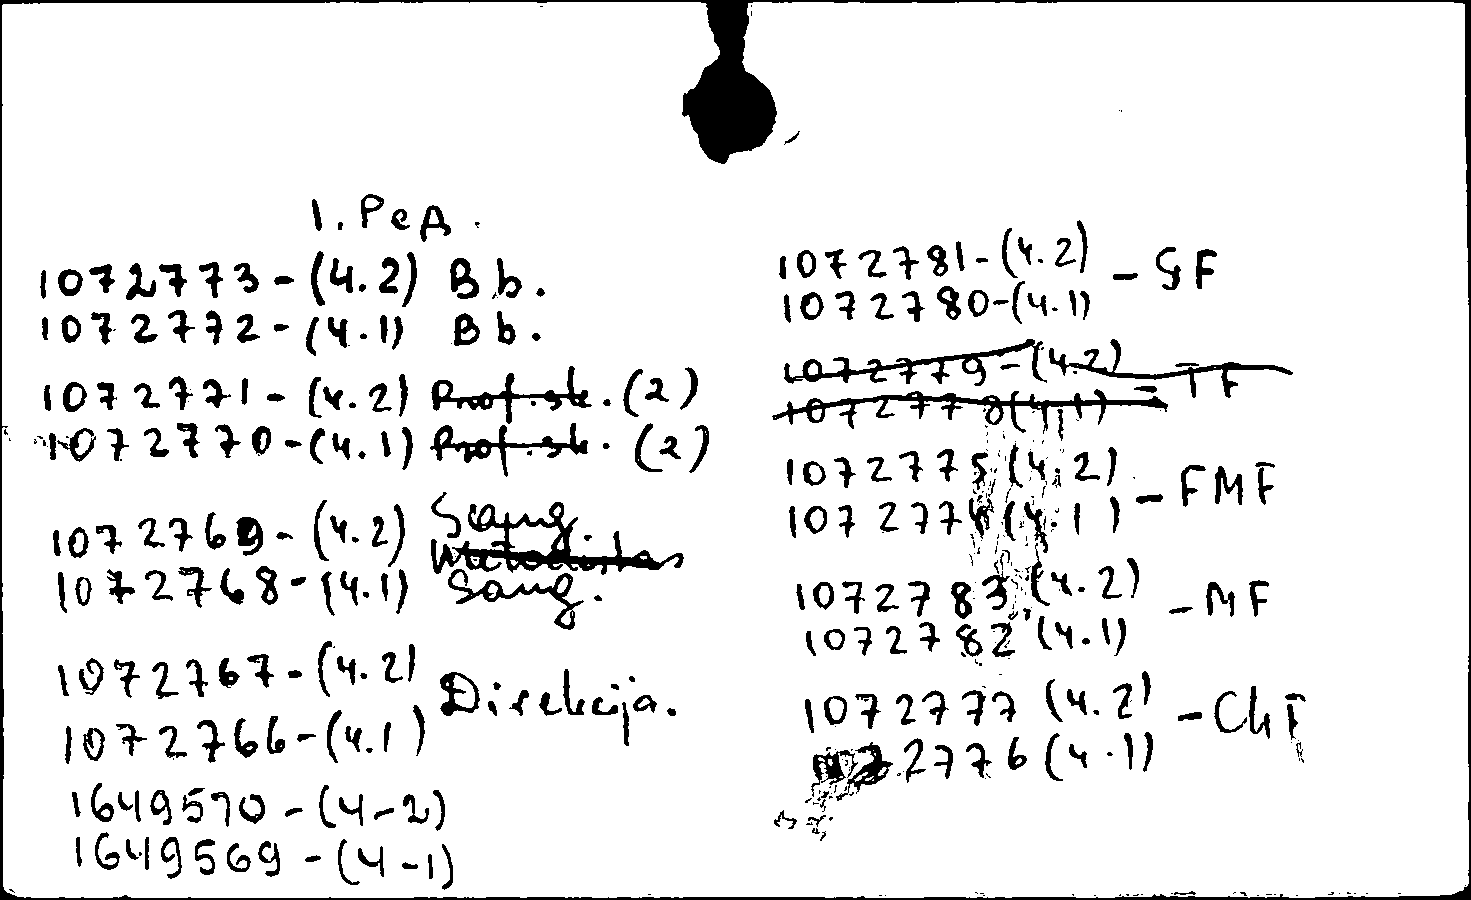 1. Ред.
1072773-(4.2) Bb.
1072772-(4.1) Bb.
1072771-(4.2) Prof.sk. (2)
1072770-(4.1) Prof.sk. (2)
1072769-(4.2) Saug.
Metodistas
1072768-(4.1) Saug.
1072767-(4.2)
Direkcija.
1072766-(4.1)
1649570-(4-2)
1649569-(4-1)
1072781-(4.2)
- GF
1072780-(4.1)
1072779-(4.2)
= TF
1072778(4.1)
1072775(4.2)
- FMF
1072774(4.1)
1072783(4.2)
- MF
1072782(4.1)
1072777(4.2)
- ChF
1072776(4.1)